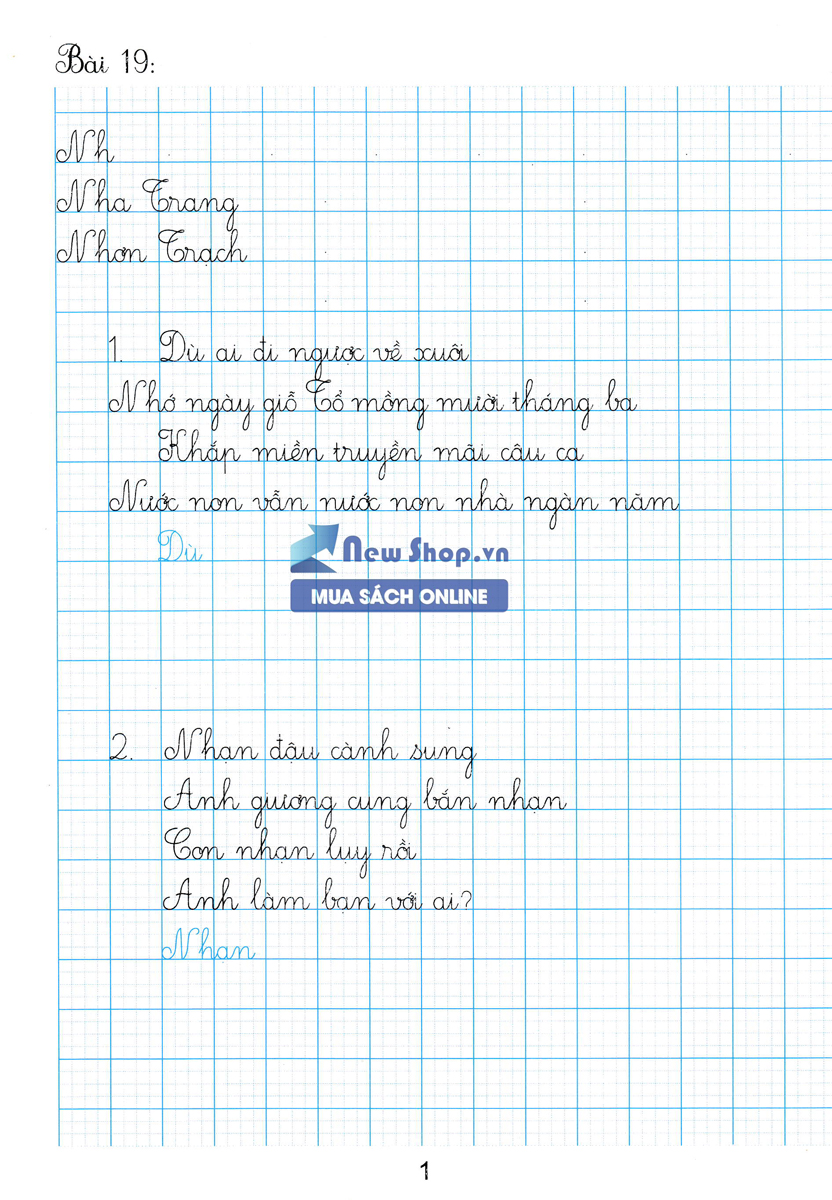 Bài 19:
Nh
Nha Trang
Nhơn Trạch
1. Dù ai đi ngược về xuôi
Nhớ ngày giỗ Tổ mồng mười tháng ba
Khắp miền truyền mãi câu ca
Nước non vẫn nước non nhà ngàn năm
Dù
New Shop.vn
MUA SÁCH ONLINE
2. Nhạn đậu cành sung
Anh giương cung bắn nhạn
Con nhạn lụy rồi
Anh làm bạn với ai?
Nhạn
1